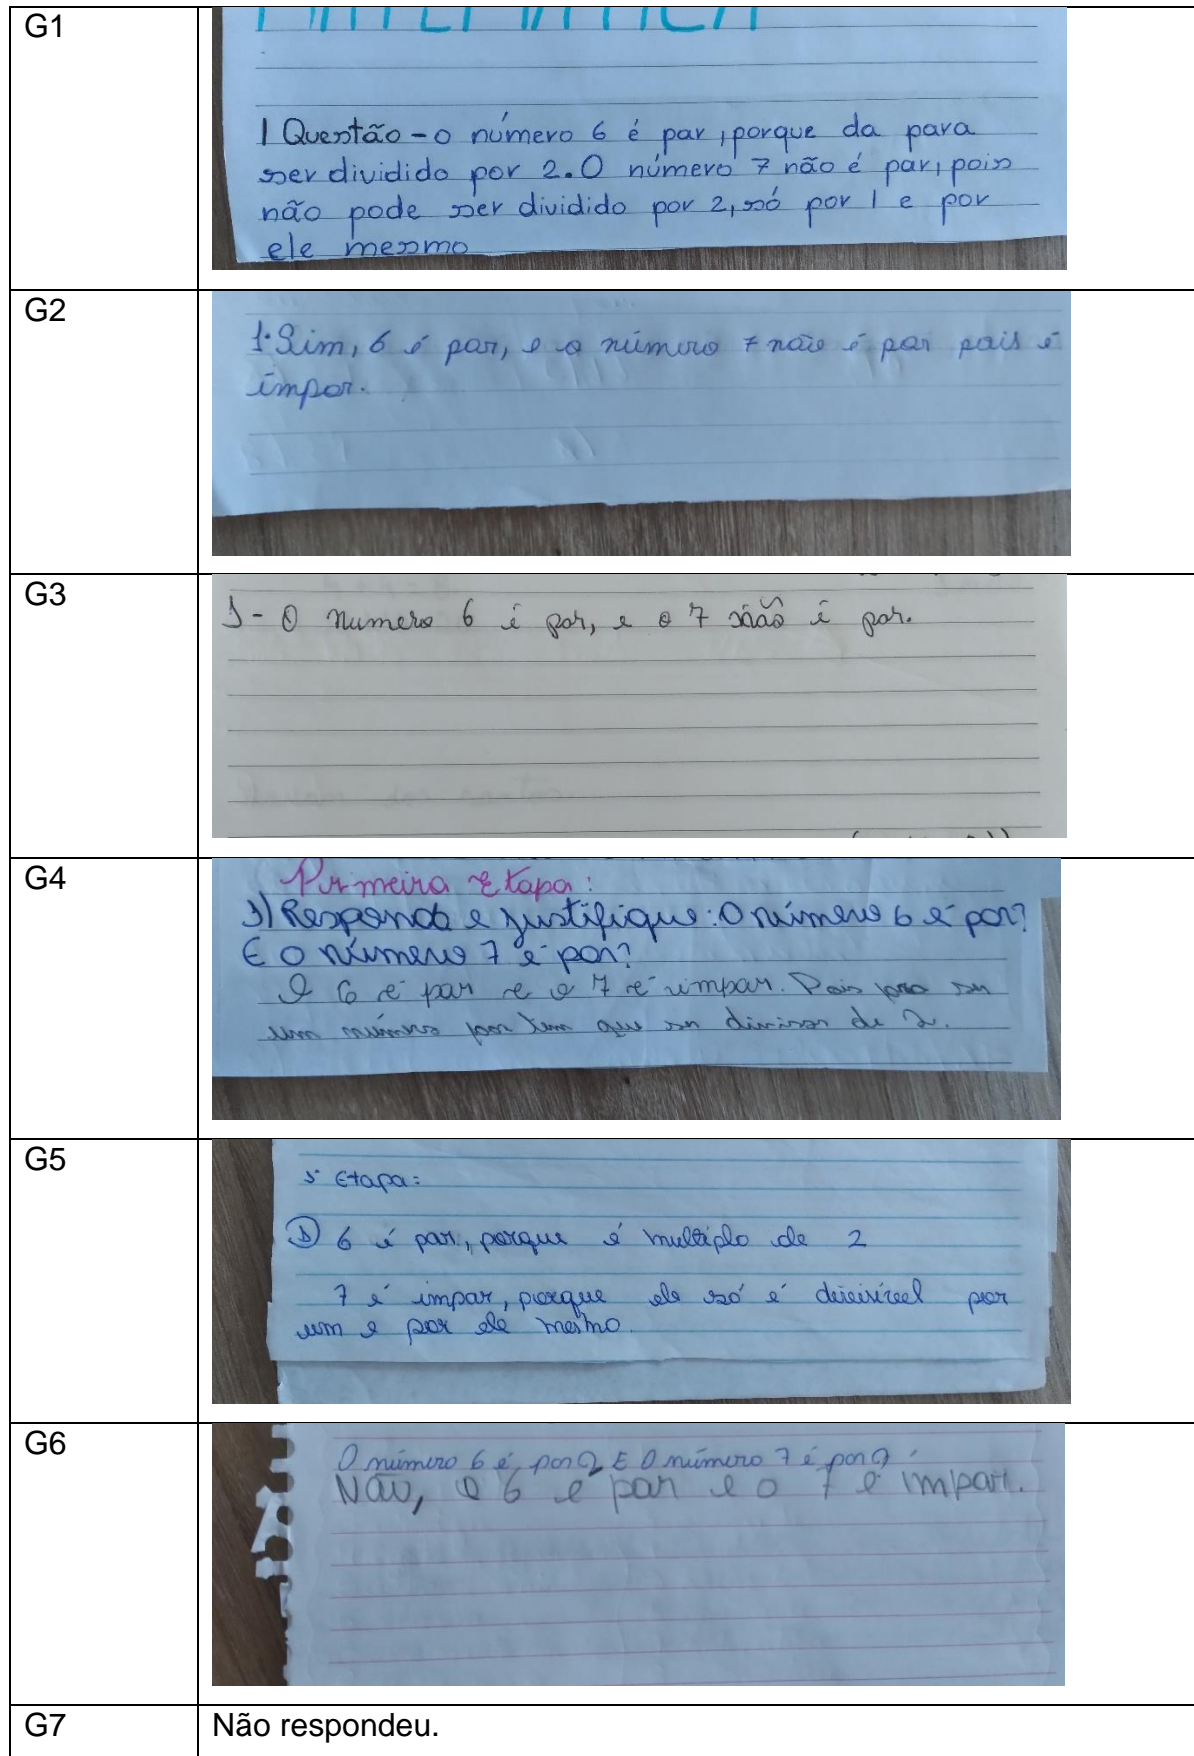 G1
1 Questão - o número 6 é par, porque da para
ser dividido por 2. O número 7 não é par, pois
não pode ser dividido por 2, só por 1 e por
ele mesmo
G2
1. Sim, 6 é par, e o número 7 não é par pois é
ímpar.
G3
1- O numero 6 é par, e o 7 não é par.
G4
Primeira Etapa:
1) Responda e justifique: O número 6 é par?
E o número 7 é par?
O 6 é par e o 7 é impar. Pois pra ser
um número par tem que ser divisor de 2.
G5
1ª Etapa:
1) 6 é par, porque é multiplo de 2
7 é impar, porque ele só é divisível por
um e por ele mesmo.
G6
O número 6 é par? E O número 7 é par?
Não, o 6 é par e o 7 é impar.
G7
Não respondeu.